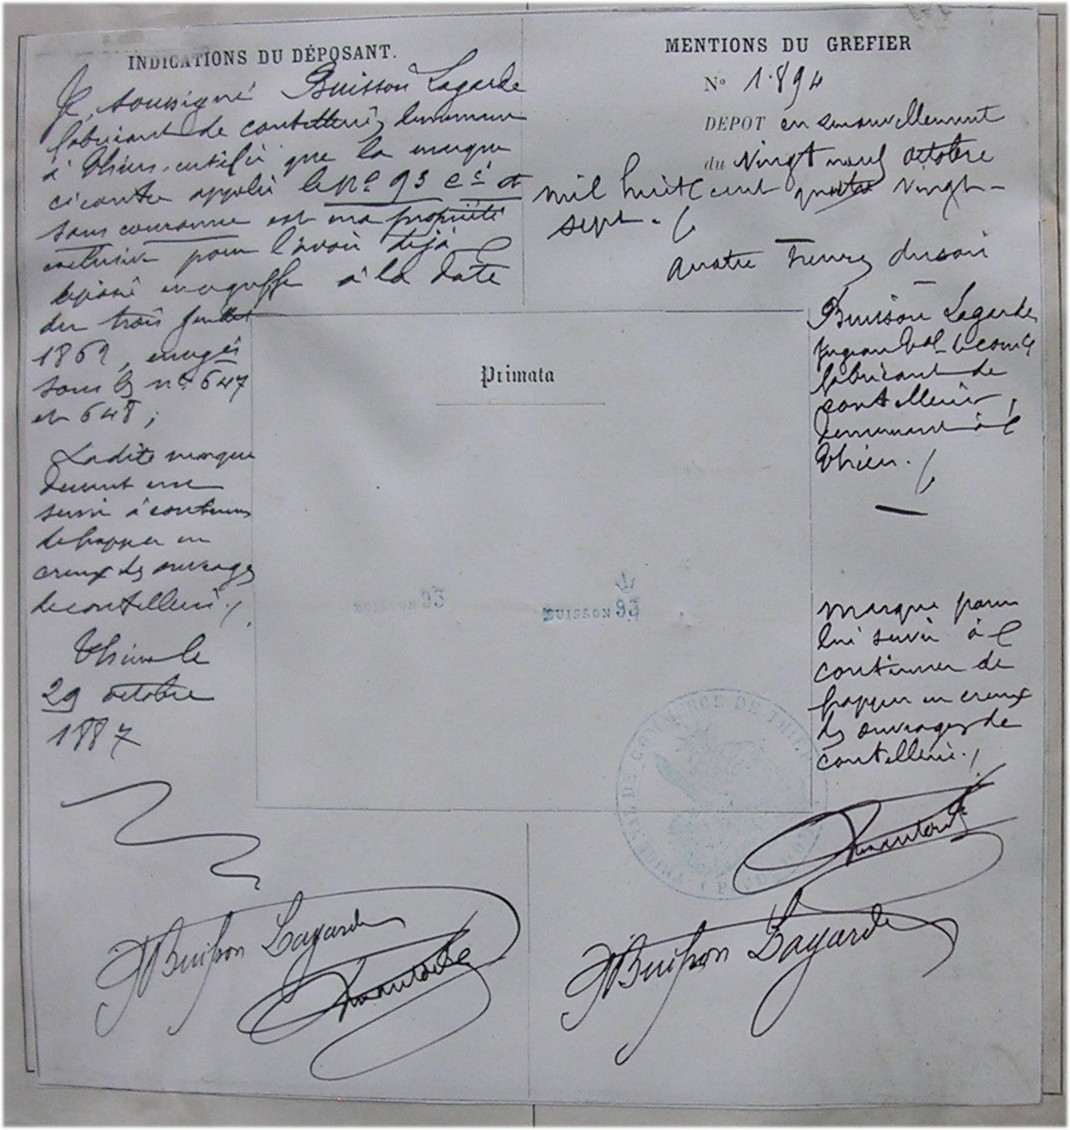 INDICATIONS DU DÉPOSANT.
Je soussigné Buisson Lagarde
fabricant de coutellerie, demeurant
à Thiers, certifie que la marque
ci contre appelée le nº 93 et
sans couronne est ma propriété
exclusive pour l'avoir déjà
déposé au greffe à la date
du trois Juillet
1869, enregés
sous les nos 647
et 648 ;
La dite marque
devant me
servir à continuer
de frapper en
creux des ouvrages
de coutellerie.
Thiers le
29 octobre
1887
Buisson Lagarde
MENTIONS DU GREFIER
Nº 1.894
DEPOT en renouvellement
du Vingt neuf octobre
mil huit cent quatre vingt-
sept.
quatre heures du soir
Buisson Lagarde
fabricant de
coutellerie,
demeurant à
Thiers.
marque pour
lui servir à
continuer de
frapper en creux
des ouvrages de
coutellerie.
Buisson Lagarde
Primata
BUISSON 93
BUISSON 93
TRIBUNAL DE COMMERCE DE THIERS